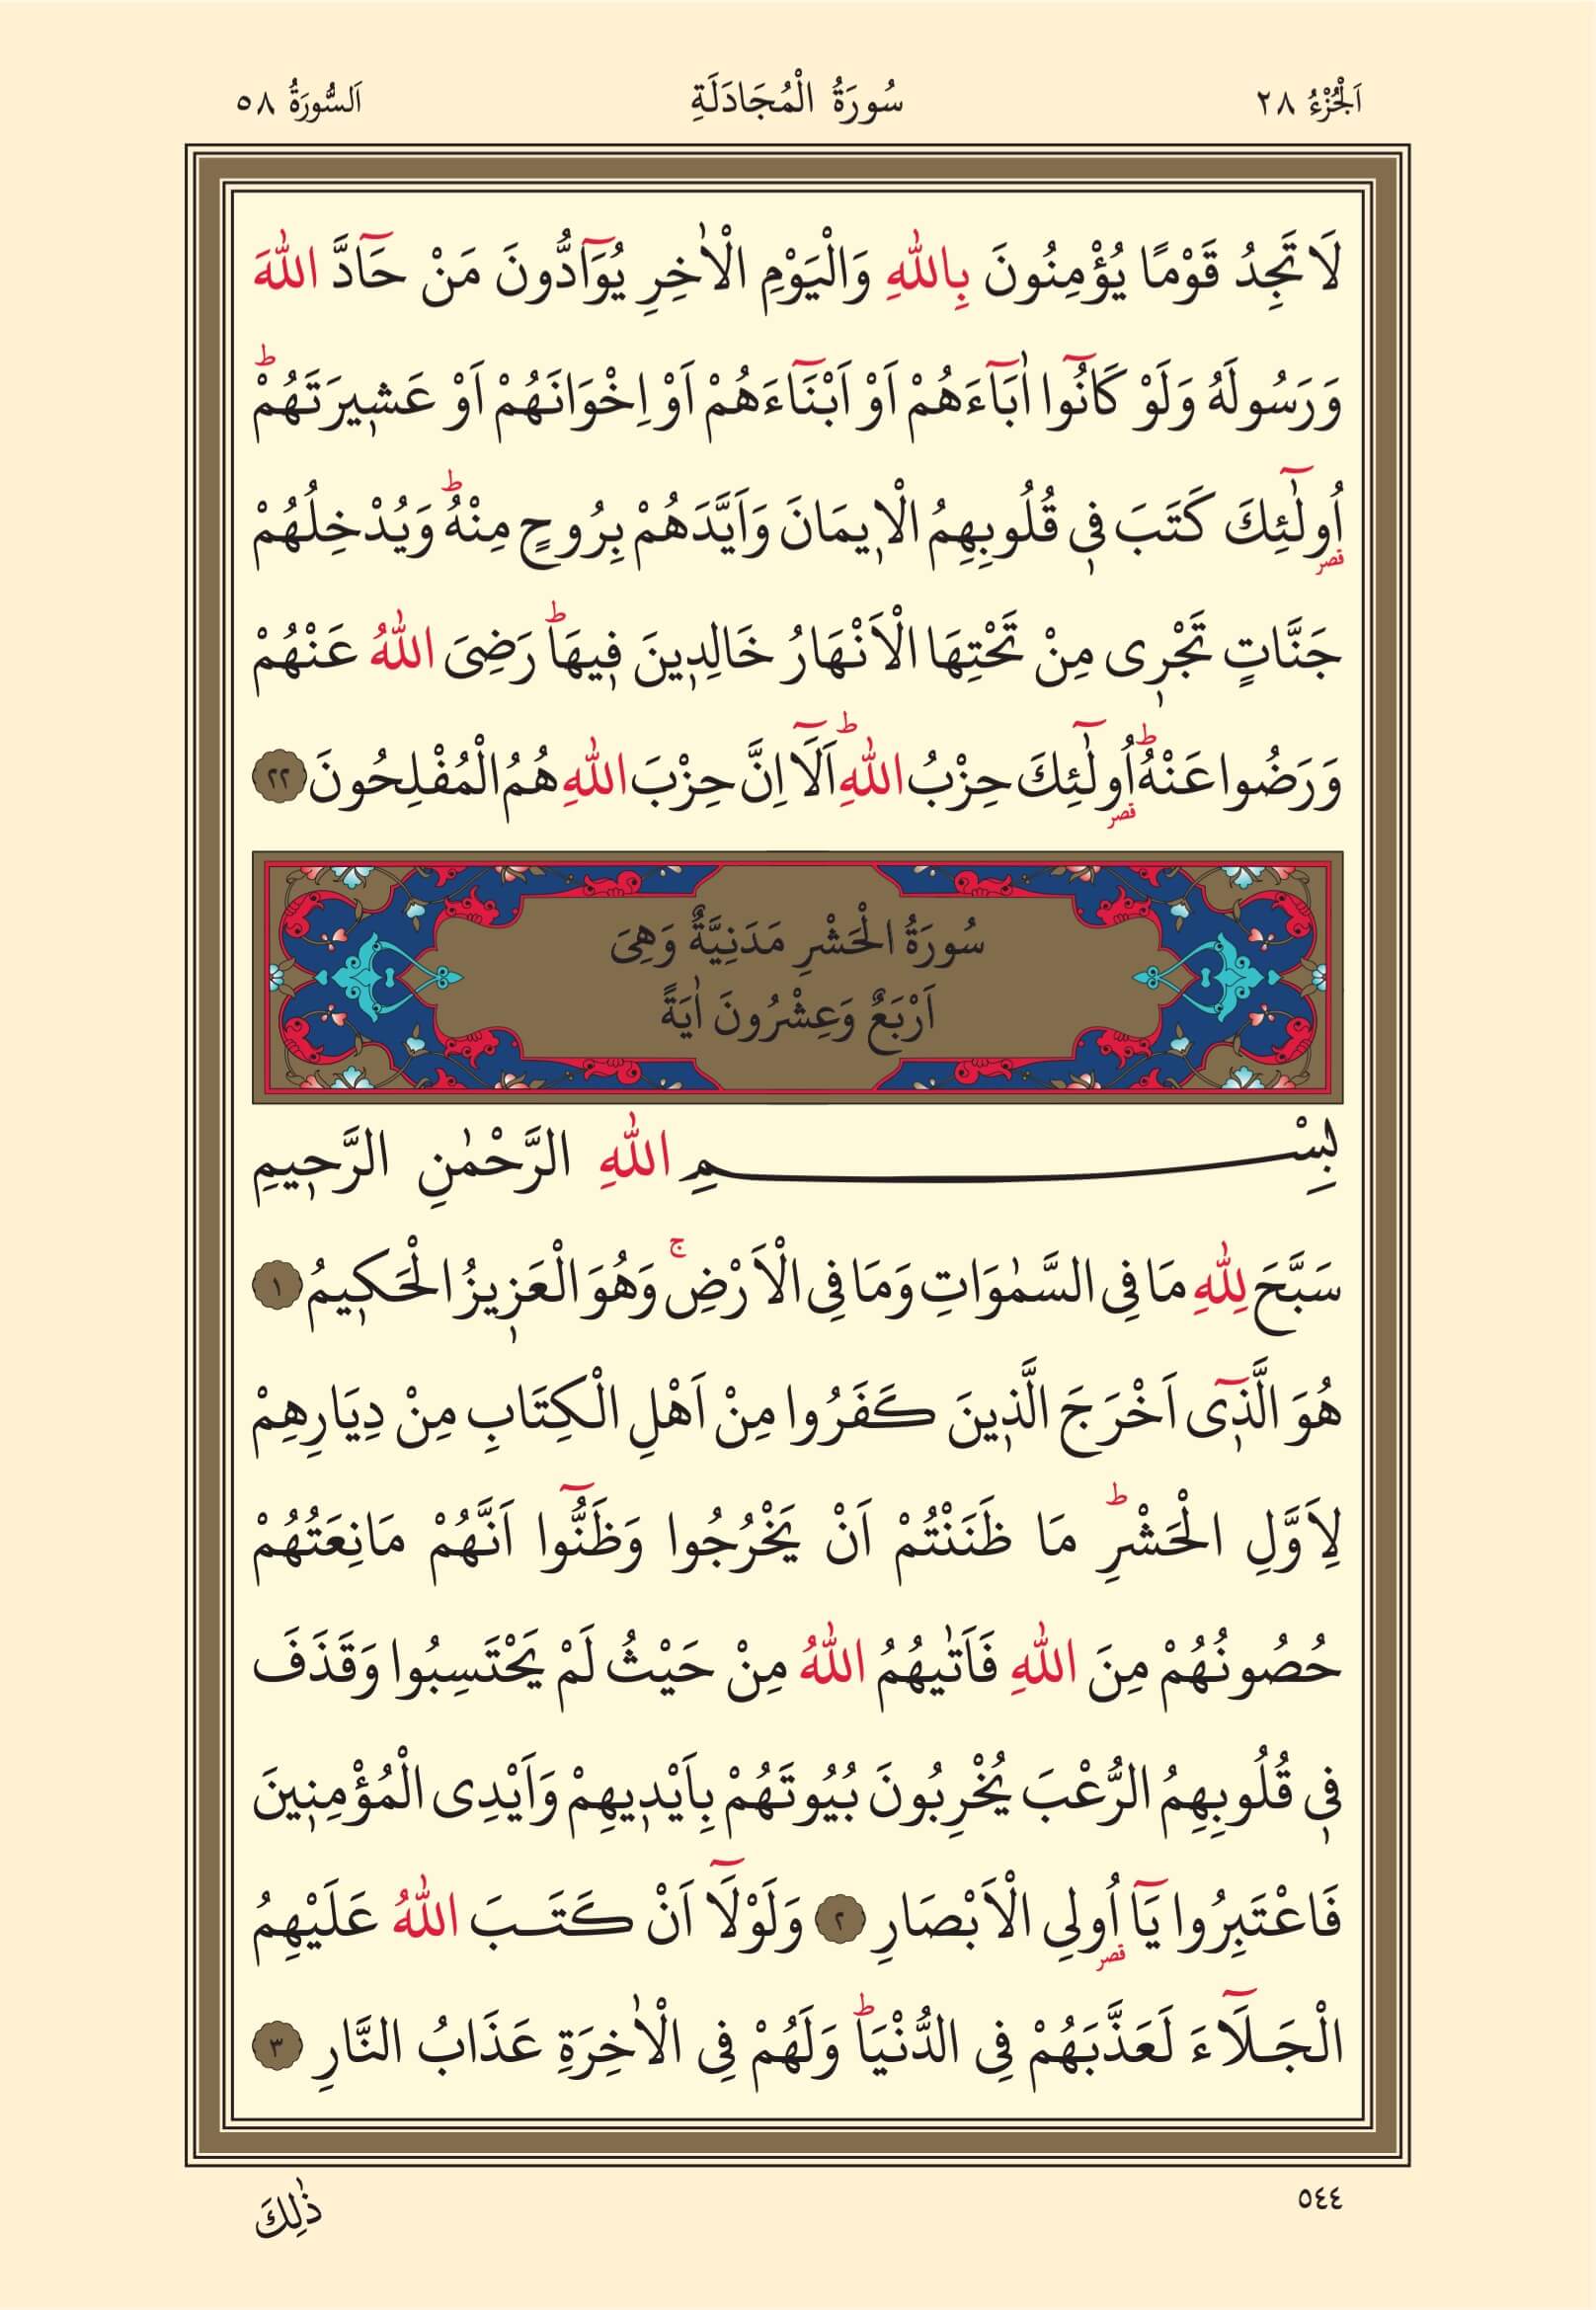 اَلْجُزْءُ ٢٨
سُورَةُ الْمُجَادَلَةِ
اَلسُّورَةُ ٥٨
لَا تَجِدُ قَوْمًا يُؤْمِنُونَ بِاللّٰهِ وَالْيَوْمِ الْاٰخِرِ يُوَٓادُّونَ مَنْ حَٓادَّ اللّٰهَ
وَرَسُولَهُ وَلَوْ كَانُٓوا اٰبَٓاءَهُمْ اَوْ اَبْنَٓاءَهُمْ اَوْ اِخْوَانَهُمْ اَوْ عَشٖيرَتَهُمْؕ
اُو۬لٰٓئِكَ كَتَبَ فٖى قُلُوبِهِمُ الْاٖيمَانَ وَاَيَّدَهُمْ بِرُوحٍ مِنْهُؕ وَيُدْخِلُهُمْ
جَنَّاتٍ تَجْرٖى مِنْ تَحْتِهَا الْاَنْهَارُ خَالِدٖينَ فٖيهَاؕ رَضِىَ اللّٰهُ عَنْهُمْ
وَرَضُوا عَنْهُؕ اُو۬لٰٓئِكَ حِزْبُ اللّٰهِؕ اَلَٓا اِنَّ حِزْبَ اللّٰهِ هُمُ الْمُفْلِحُونَ ٢٢
سُورَةُ الْحَشْرِ مَدَنِيَّةٌ وَهِىَ
اَرْبَعٌ وَعِشْرُونَ اٰيَةً
بِسْمِ اللّٰهِ الرَّحْمٰنِ الرَّحٖيمِ
سَبَّحَ لِلّٰهِ مَا فِى السَّمٰوَاتِ وَمَا فِى الْاَرْضِۚ وَهُوَ الْعَزٖيزُ الْحَكٖيمُ ١
هُوَ الَّذٖٓى اَخْرَجَ الَّذٖينَ كَفَرُوا مِنْ اَهْلِ الْكِتَابِ مِنْ دِيَارِهِمْ
لِاَوَّلِ الْحَشْرِؕ مَا ظَنَنْتُمْ اَنْ يَخْرُجُوا وَظَنُّٓوا اَنَّهُمْ مَانِعَتُهُمْ
حُصُونُهُمْ مِنَ اللّٰهِ فَاَتٰيهُمُ اللّٰهُ مِنْ حَيْثُ لَمْ يَحْتَسِبُوا وَقَذَفَ
فٖى قُلُوبِهِمُ الرُّعْبَ يُخْرِبُونَ بُيُوتَهُمْ بِاَيْدٖيهِمْ وَاَيْدِى الْمُؤْمِنٖينَ
فَاعْتَبِرُوا يَٓا اُو۬لِى الْاَبْصَارِ ٢ وَلَوْلَٓا اَنْ كَتَبَ اللّٰهُ عَلَيْهِمُ
الْجَلَٓاءَ لَعَذَّبَهُمْ فِى الدُّنْيَاؕ وَلَهُمْ فِى الْاٰخِرَةِ عَذَابُ النَّارِ ٣
٥٤٤
ذٰلِكَ